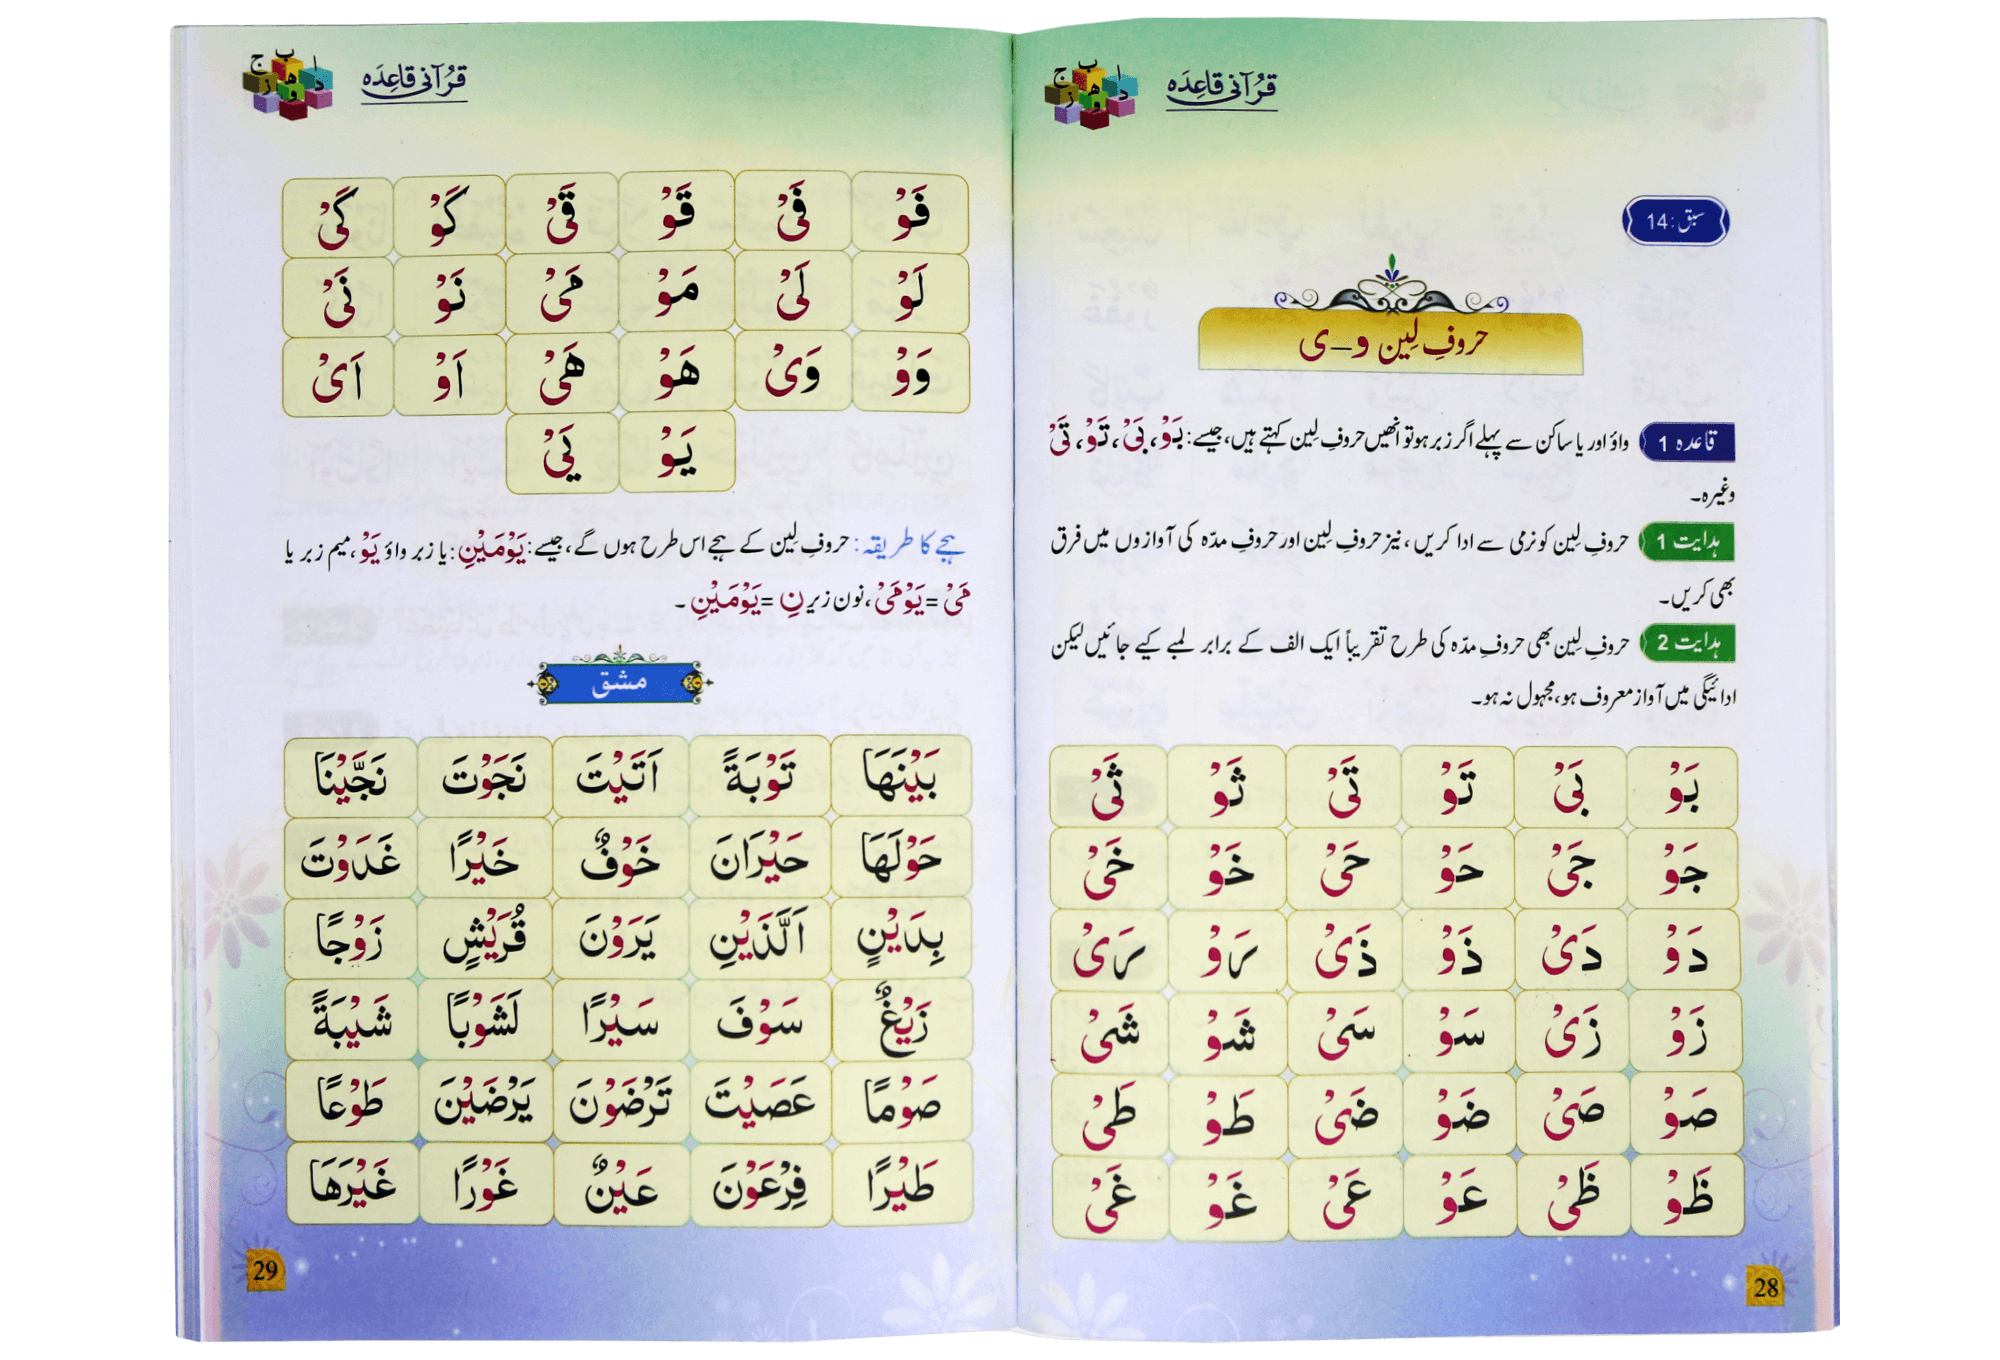 قرآنی قاعدہ
سبق: 14
حروفِ لِین و–ی
قاعدہ 1 واؤ اور یا ساکن سے پہلے اگر زبر ہو تو انھیں حروفِ لِین کہتے ہیں، جیسے: بَوْ، بَیْ، تَوْ، تَیْ
وغیرہ۔
ہدایت 1 حروفِ لِین کو نرمی سے ادا کریں، نیز حروفِ لِین اور حروفِ مدّہ کی آوازوں میں فرق
بھی کریں۔
ہدایت 2 حروفِ لِین بھی حروفِ مدّہ کی طرح تقریباً ایک الف کے برابر لمبے کیے جائیں لیکن
ادائیگی میں آواز معروف ہو، مجہول نہ ہو۔
بَوْ بَیْ تَوْ تَیْ ثَوْ ثَیْ
جَوْ جَیْ حَوْ حَیْ خَوْ خَیْ
دَوْ دَیْ ذَوْ ذَیْ رَوْ رَیْ
زَوْ زَیْ سَوْ سَیْ شَوْ شَیْ
صَوْ صَیْ ضَوْ ضَیْ طَوْ طَیْ
ظَوْ ظَیْ عَوْ عَیْ غَوْ غَیْ
28
قرآنی قاعدہ
فَوْ فَیْ قَوْ قَیْ کَوْ کَیْ
لَوْ لَیْ مَوْ مَیْ نَوْ نَیْ
وَوْ وَیْ هَوْ هَیْ اَوْ اَیْ
یَوْ یَیْ
ہجے کا طریقہ: حروفِ لِین کے ہجے اس طرح ہوں گے، جیسے: یَوْمَیْنِ: یا زبر واؤ یَوْ، میم زبر یا
مَیْ = یَوْمَیْ، نون زیر نِ = یَوْمَیْنِ۔
مشق
بَیْنَهَا تَوْبَةً اَتَیْتَ نَجَوْتَ نَجَّیْنَا
حَوْلَهَا حَیْرَانَ خَوْفٌ خَیْرًا غَدَوْتَ
بِدَیْنٍ اَلَّذَیْنِ یَرَوْنَ قُرَیْشٍ زَوْجًا
زَیْغٌ سَوْفَ سَیْرًا لَشَوْبًا شَیْبَةً
صَوْمًا عَصَیْتَ تَرْضَوْنَ یَرْضَیْنَ طَوْعًا
طَیْرًا فِرْعَوْنَ عَیْنٌ غَوْرًا غَیْرَهَا
29